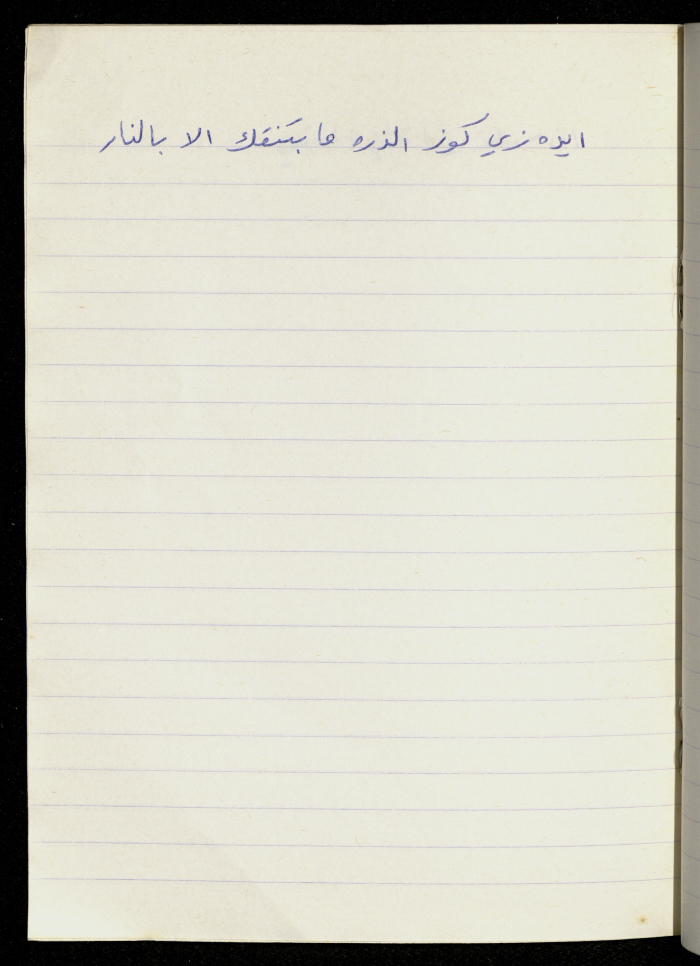 ايده زي كوز الذره ما بتنفك الا بالنار